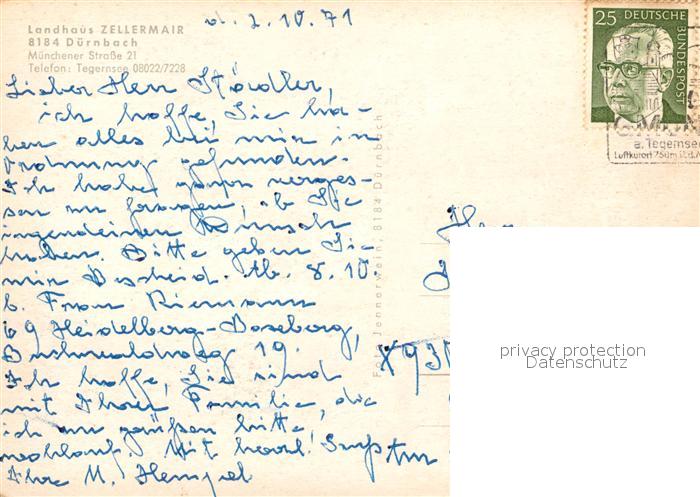 d. 2.10.71
Landhaus ZELLERMAIR
8184 Dürnbach
Münchener Straße 21
Telefon: Tegernsee 08022/7228
25 DEUTSCHE
BUNDESPOST
a. Tegernsee
Luftkurort
Lieber Herr Städler,
ich hoffe, Sie ha-
ben alles bei mir in
Ordnung gefunden.
Ich habe ganz verges-
sen zu fragen, ob Sie
irgendeinen Wunsch
haben. Bitte geben Sie
mir Bescheid. Ab. 8.10.
b. Frau Riemann
69 Heidelberg-Boxberg,
Buchwaldweg 19.
Ich hoffe, Sie sind
mit Ihrer Familie, die
ich zu grüßen bitte,
wohlauf. Mit herzl.
Ihre M. Hempel
Foto Jennerwein, 8184 Dürnbach
Herr
privacy protection
Datenschutz